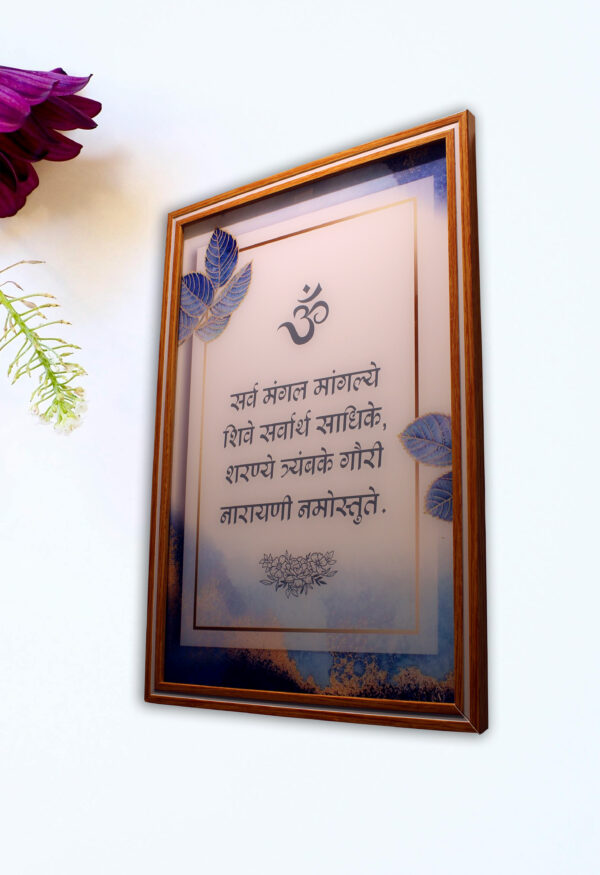 ॐ
सर्व मंगल मांगल्ये
शिवे सर्वार्थ साधिके,
शरण्ये त्र्यंबके गौरी
नारायणी नमोस्तुते.